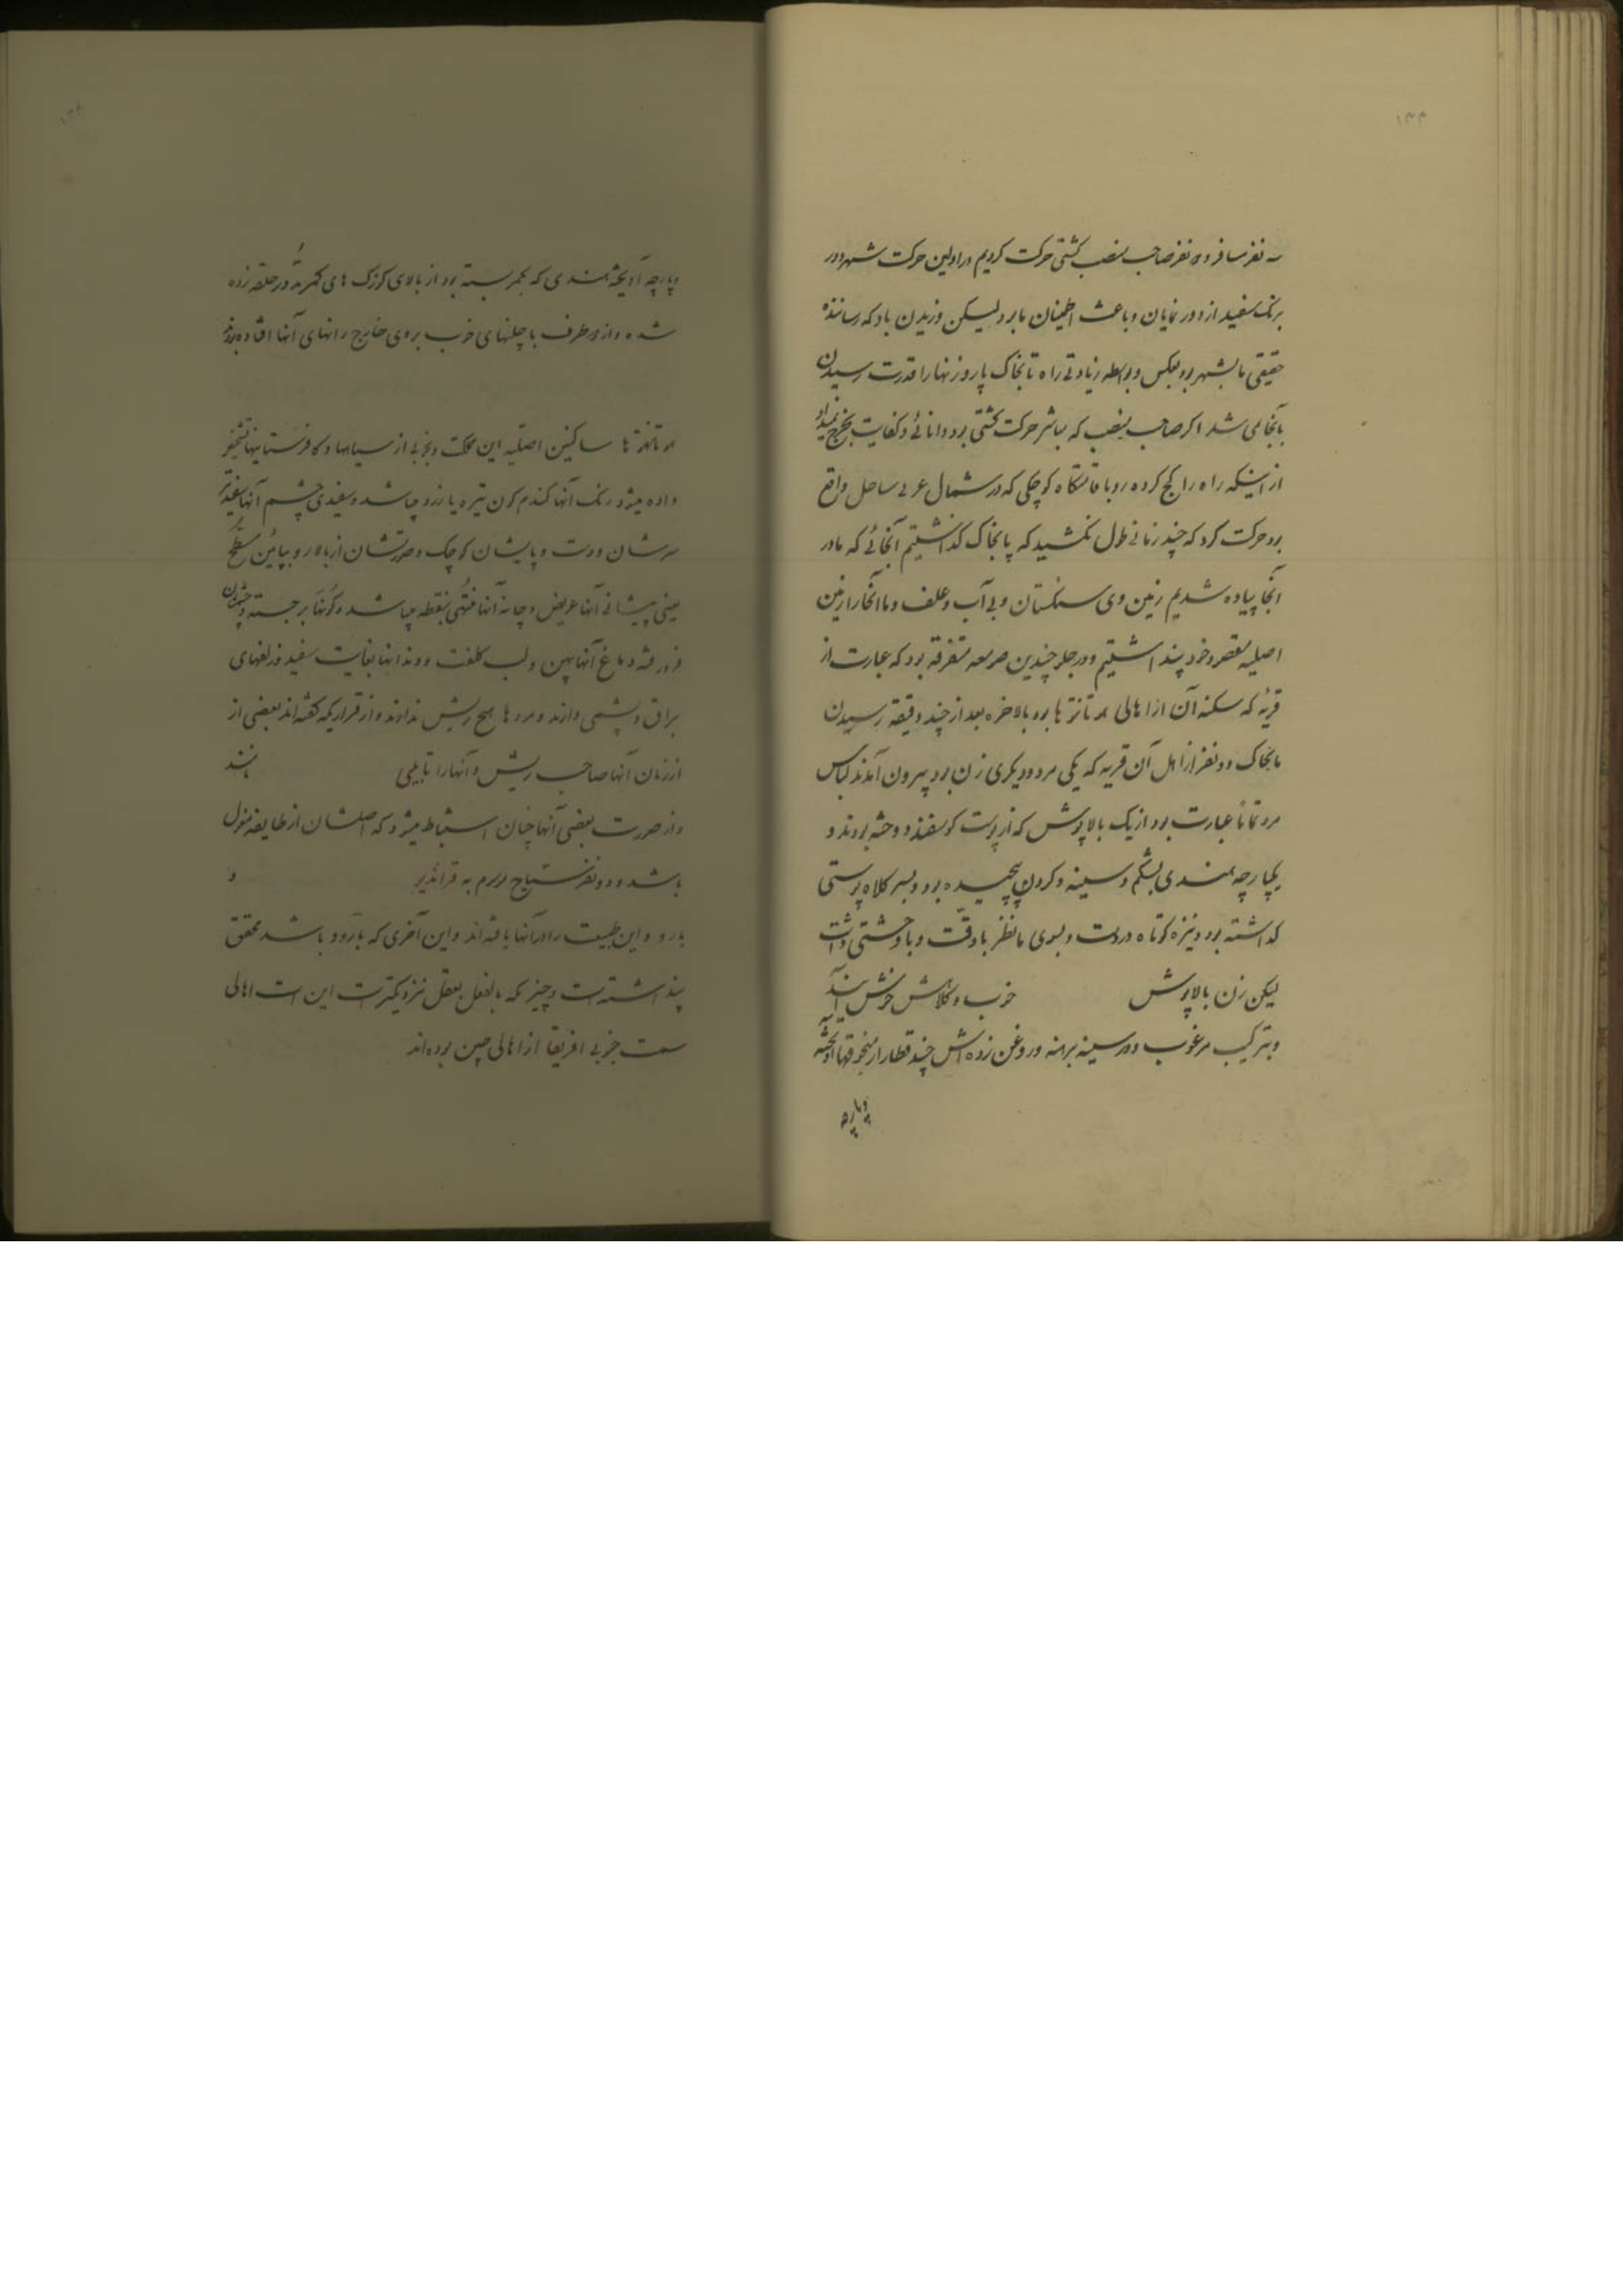 ۱۳۳
سه نفر مسافر و ده نفر صاحب منصب کشتی حرکت کردیم در اولین حرکت شهر دور
برنک سفید از دور نمایان و باعث اطمینان ما بود لیکن وزیدن باد که رساننده
حقیقی ما بشهر بود بعکس و بواسطه زیادتی راه تا بخاک پاروزنها را قدرت رسیدن
بآنجا نمی شد اکر صاحب منصب که مباشر حرکت کشتی بود دانائی و کفایت بخرج نمیداد
از اینکه راه را کج کرده رو باقامتکاه کوچکی که در شمال غربی ساحل واقع
بود حرکت کرد که چند زمانی طول نکشید که پا بخاک کذاشتیم آنجائی که ما در
آنجا پیاده شدیم زمین وی سنکستان و بی آب و علف و ما آنجا را زمین
اصلیه مقصد خود پنداشتیم و در جلو چندین صومعه متفرقه بود که عبارت از
قریهٔ که سکنه آن از اهالی هوتانتوتها بود بالاخره بعد از چند دقیقه رسیدن
ما بخاک دو نفر از اهل آن قریه که یکی مرد و دیکری زن بود بیرون آمدند لباس
مرد تماماً عبارت بود از یک بالاپوش که از پوست کوسفند دوخته بودند و
یکپارچه هندی بشکم و سینه و کردن پیچیده بود و بسر کلاه پوستی
کذاشته بود و نیزه کوتاه در دست و بسوی ما نظر با دقت و با وحشتی داشت
لیکن زن بالاپوش خوب و کلاهش خوش آیند
و بترکیب مرغوب و در سینه برهنه و روغن زده اش چند قطار از منجوقها آویخته
و پارچه
و پارچه آویخته هندی که بکمر بسته بود از بالای کورک های کمر مدور حلقه زده
شده و از دو طرف با چلنهای خوب بروی خارج رانهای آنها افتاده بودند
ساکنین اصلیه این مملکت و بخوبی از سیاهها و کافرستانیها تشخیص
داده میشود رنک آنها کندم کون تیره یا زرد میباشد و سفیدی چشم آنها سفیدتر
سرشان و دست و پایشان کوچک و صورتشان از بالا رو بپایین مسطح
یعنی پیشانی آنها عریض و چانه آنها منتهی بنقطه میباشد و کونها برجسته و چشمان
فرو رفته دماغ آنها پهن و لب کلفت و دندانها بغایت سفید و زلفهای
براق و پشمی دارند و مردها هیچ ریش ندارند و از قراریکه کفته اند بعضی از
از زنان آنها صاحب ریش و آنها را تابلی باشند
و از صورت بعضی آنها چنان استنباط میشود که اصلشان از طایفه مغول
باشد و دو نفر سیاح موسوم به و
بارو و این طبیعت را در آنها یافته اند و این آخری که بارو باشد محقق
پنداشته است و چیزیکه بالفعل بعقل نزدیکتر است این است اهالی
سمت جنوبی افریقا از اهالی چین بوده اند